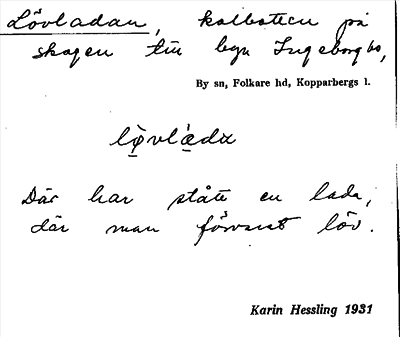 Lövladan, kolbotten på
skogen till byn Ingeborgbo,
By sn, Folkare hd, Kopparbergs l.
Där har stått en lada,
där man förvarat löv.
Karin Hessling 1931